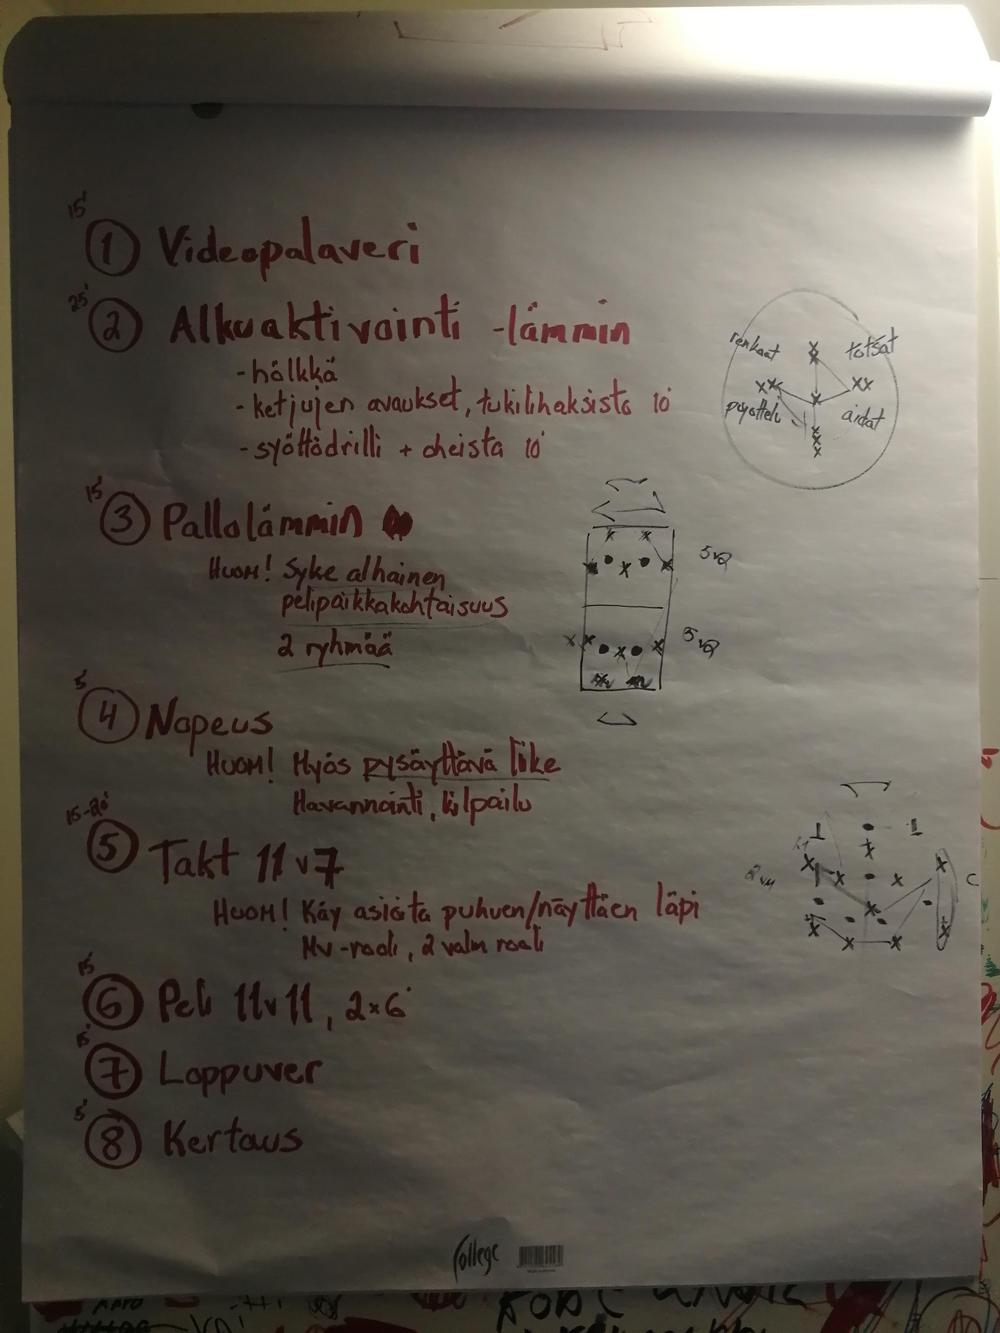 15'
① Videopalaveri
25'
② Alkuaktivointi -lämmin
- hölkkä
- ketjujen avaukset, tukilihaksisto 10'
- syöttödrilli + oheista 10'
renkaat
tötsät
pujottelu
aidat
15'
③ Pallolämmin
HUOM! Syke alhainen
pelipaikkakohtaisuus
2 ryhmää
5v2
5v2
5'
④ Nopeus
HUOM! Myös pysäyttävä liike
Havannointi, kilpailu
15-20'
⑤ Takt 11v7
HUOM! Käy asioita puhuen/näyttäen läpi
MV-rooli, 2 valm rooli
15'
⑥ Peli 11v11, 2x6'
15'
⑦ Loppuver
5'
⑧ Kertaus
College